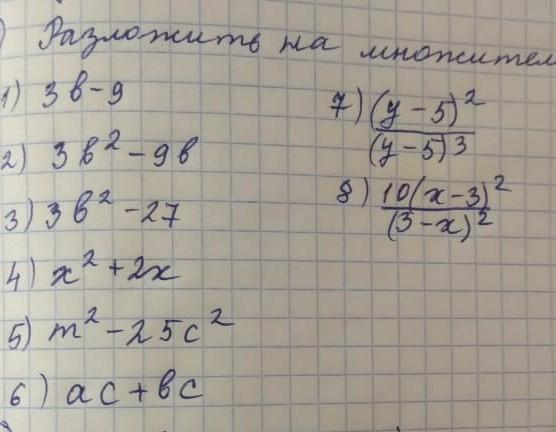 ) Разложить на множител
1) 3в-9
2) 3в² - 9в
3) 3в² - 27
4) x² + 2x
5) m² - 25c²
6) ac + вc
7) (y - 5)² / (y - 5)³
8) 10(x - 3)² / (3 - x)²